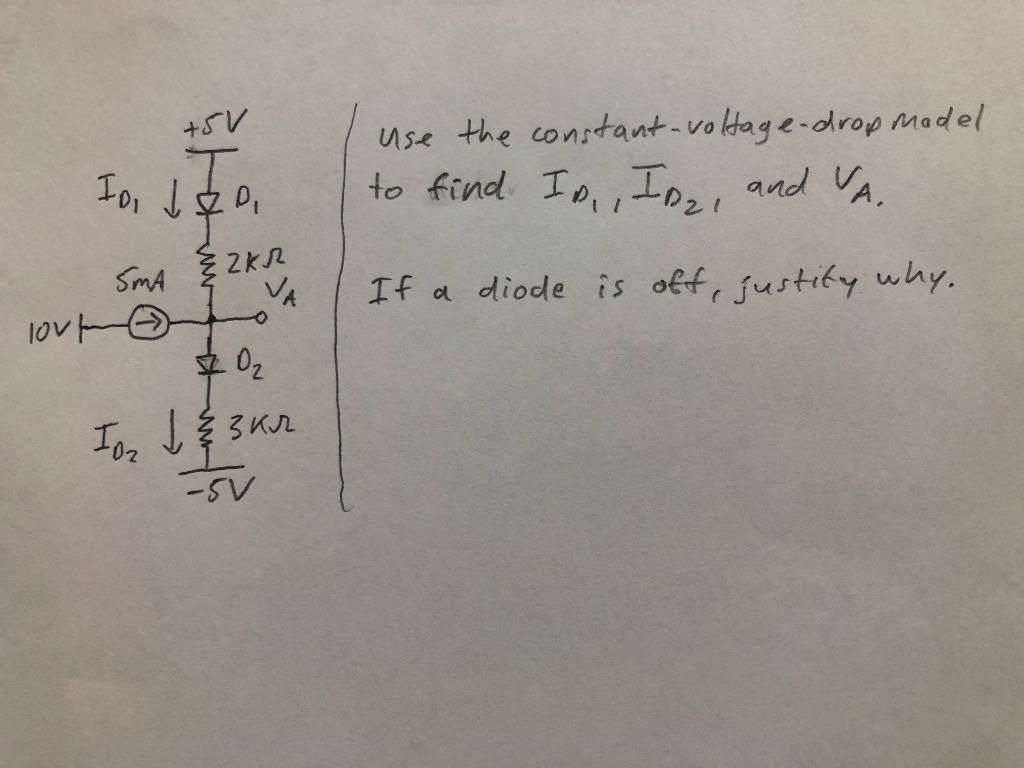 +5V
I_D1 ↓ D1
2kΩ
5mA
VA
10V
D2
I_D2 ↓ 3KΩ
-5V
Use the constant-voltage-drop Model
to find I_D1, I_D2, and VA.
If a diode is off, justify why.